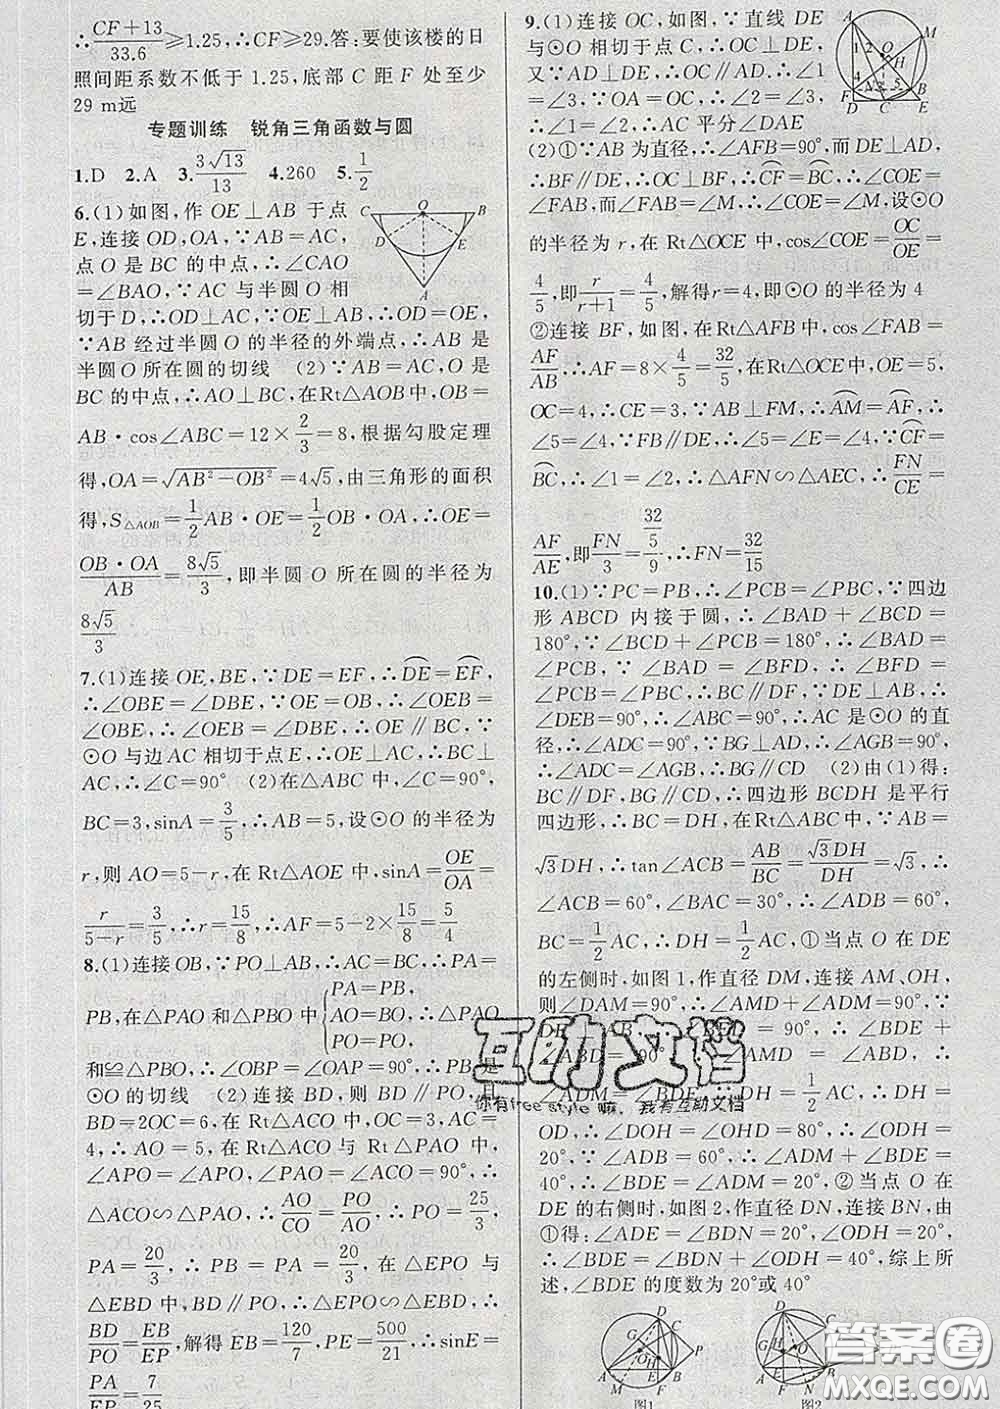 ∴(CF+13)/33.6≥1.25,∴CF≥29.答:要使该楼的日
照间距系数不低于1.25,底部C距F处至少
29 m远
专题训练 锐角三角函数与圆
1.D 2.A 3.3√13/13 4.260 5.1/2
6.(1)如图,作OE⊥AB于点
E,连接OD,OA,∵AB=AC,
点O是BC的中点,∴∠CAO
=∠BAO,∵AC与半圆O相
切于D,∴OD⊥AC,∵OE⊥AB,∴OD=OE,
∵AB经过半圆O的半径的外端点,∴AB是
半圆O所在圆的切线 (2)∵AB=AC,O是
BC的中点,∴AO⊥BC,在Rt△AOB中,OB=
AB·cos∠ABC=12×2/3=8,根据勾股定理
得,OA=√(AB²-OB²)=4√5,由三角形的面积
得,S△AOB=1/2AB·OE=1/2OB·OA,∴OE=
OB·OA/AB=8√5/3,即半圆O所在圆的半径为
8√5/3
7.(1)连接OE,BE,∵DE=EF,∴⌒DE=⌒EF,
∴∠OBE=∠DBE,∵OE=OB,∴∠OEB=
∠OBE,∴∠OEB=∠DBE,∴OE∥BC,∵
⊙O与边AC相切于点E,∴OE⊥AC,∴BC⊥
AC,∴∠C=90° (2)在△ABC中,∠C=90°,
BC=3,sinA=3/5,∴AB=5,设⊙O的半径为
r,则AO=5-r,在Rt△AOE中,sinA=OE/OA=
r/(5-r)=3/5,∴r=15/8,∴AF=5-2×15/8=5/4
8.(1)连接OB,∵PO⊥AB,∴AC=BC,∴PA=
PB,在△PAO和△PBO中{PA=PB,
AO=BO,∴△PAO
PO=PO,
和≌△PBO,∴∠OBP=∠OAP=90°,∴PB是
⊙O的切线 (2)连接BD,则BD∥PO,且
BD=2OC=6,在Rt△ACO中,OC=3,AC=
4,∴AO=5,在Rt△ACO与Rt△PAO中,
∠APO=∠APO,∠PAO=∠ACO=90°,∴
△ACO∽△PAO,∴AO/CO=PO/AO,∴PO=25/3,
PA=20/3,∴PB=PA=20/3,在△EPO与
△EBD中,BD∥PO,∴△EPO∽△EBD,∴
BD/PO=EB/EP,解得EB=120/7,PE=500/21,∴sinE=
PA/EP=7/25
9.(1)连接OC,如图,∵直线DE
与⊙O相切于点C,∴OC⊥DE,
又∵AD⊥DE,∴OC∥AD,∴∠1=
∠3,∵OA=OC,∴∠2=∠3,∴
∠1=∠2,∴AC平分∠DAE
(2)①∵AB为直径,∴∠AFB=90°,而DE⊥AD,
∴BF∥DE,∴OC⊥BF,∴⌒CF=⌒BC,∴∠COE=
∠FAB,而∠FAB=∠M,∴∠COE=∠M,设⊙O
的半径为r,在Rt△OCE中,cos∠COE=OC/OE=
4/5,即r/(r+1)=4/5,解得r=4,即⊙O的半径为4
②连接BF,如图,在Rt△AFB中,cos∠FAB=
AF/AB,∴AF=8×4/5=32/5,在Rt△OCE中,OE=5,
OC=4,∴CE=3,∵AB⊥FM,∴⌒AM=⌒AF,∴
∠5=∠4,∵FB∥DE,∴∠5=∠E=∠4,∵⌒CF=
⌒BC,∴∠1=∠2,∴△AFN∽△AEC,∴FN/CE=
AF/AE,即FN/3=(32/5)/9,∴FN=32/15
10.(1)∵PC=PB,∴∠PCB=∠PBC,∵四边
形ABCD内接于圆,∴∠BAD+∠BCD=
180°,∵∠BCD+∠PCB=180°,∴∠BAD=
∠PCB,∵∠BAD=∠BFD,∴∠BFD=
∠PCB=∠PBC,∴BC∥DF,∵DE⊥AB,∴
∠DEB=90°,∴∠ABC=90°,∴AC是⊙O的直
径,∴∠ADC=90°,∵BG⊥AD,∴∠AGB=90°,
∴∠ADC=∠AGB,∴BG∥CD (2)由(1)得:
BC∥DF,BG∥CD,∴四边形BCDH是平行
四边形,∴BC=DH,在Rt△ABC中,∵AB=
√3DH,∴tan∠ACB=AB/BC=√3DH/DH=√3,∴
∠ACB=60°,∠BAC=30°,∴∠ADB=60°,
BC=1/2AC,∴DH=1/2AC,①当点O在DE
的左侧时,如图1,作直径DM,连接AM、OH,
则∠DAM=90°,∴∠AMD+∠ADM=90°,∵
∴∠BDE+
∠ABD=90°,∵∠AMD=∠ABD,
DH=1/2AC,∴DH=
OD,∴∠DOH=∠OHD=80°,∴∠ODH=
20°,∵∠ADB=60°,∴∠ADM+∠BDE=
40°,∴∠BDE=∠ADM=20°,②当点O在
DE的右侧时,如图2,作直径DN,连接BN,由
①得:∠ADE=∠BDN=20°,∠ODH=20°,
∴∠BDE=∠BDN+∠ODH=40°,综上所
述,∠BDE的度数为20°或40°
图1 图2
互助文档
你有free style嘛,我有互助文档
答案圈
MXQE.COM